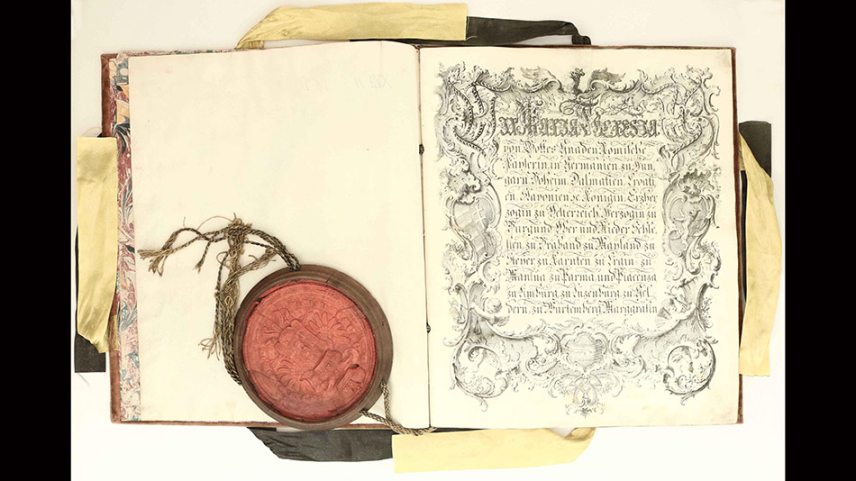 Wir Maria Theresia
von Gottes Gnaden Römische
Kayserin, in Germanien zu Hun-
garn, Böheim, Dalmatien, Croati-
en, Slavonien, Königin, Erzher-
zogin zu Oesterreich, Herzogin zu
Burgund, Ober und Nieder Schle-
sien, zu Braband, zu Mayland, zu
Steyer, zu Kärnten, zu Crain, zu
Mantua, zu Parma, und Piacenza
zu Limburg, zu Luzenburg, zu Gel-
dern, zu Würtemberg, Marggräfin